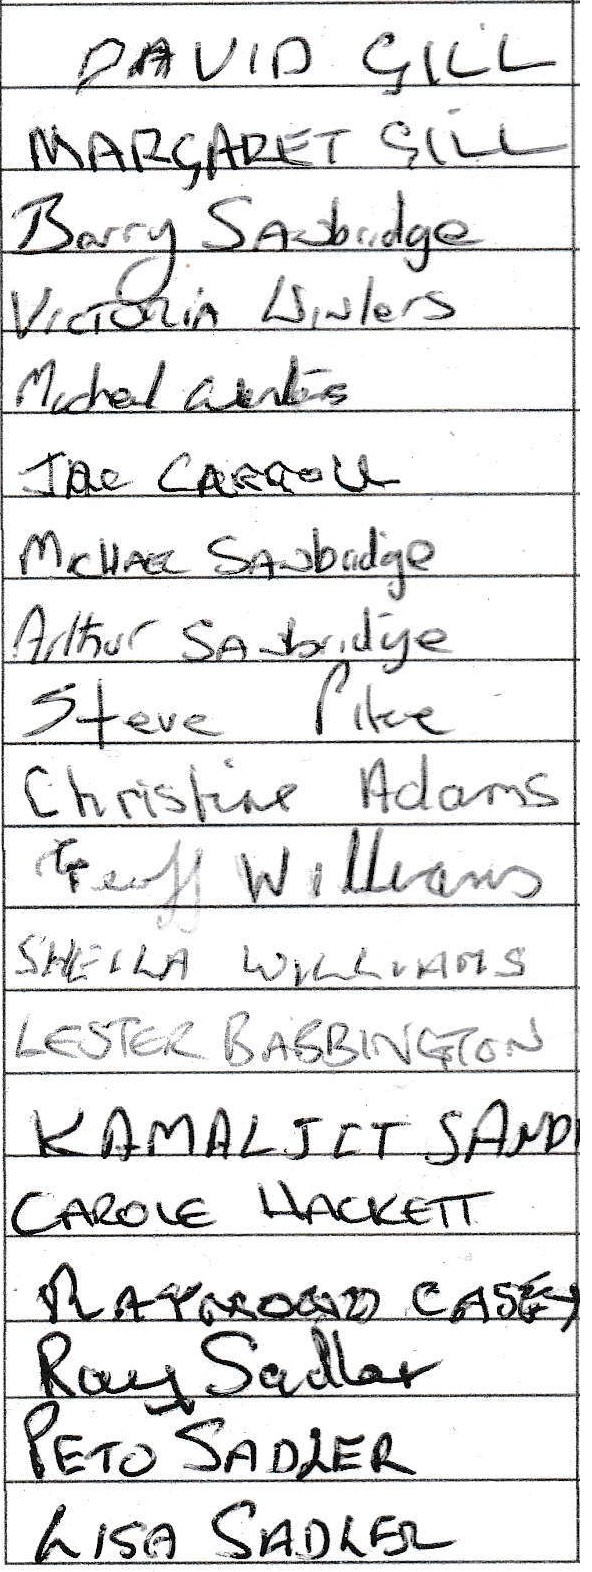 DAVID GILL
MARGARET GILL
Barry SAwbridge
VICTORIA Winters
Micheal Winters
JAC CARROLL
MICHAEL SAwbridge
Arthur SAwbridge
Steve Pike
Christine Adams
Geoff Williams
SHEILA WILLIAMS
LESTER BABBINGTON
KAMALJIT SAND
CAROLE HACKETT
RAYMOND CASEY
Ray Sadler
PETO SADLER
LISA SADLER